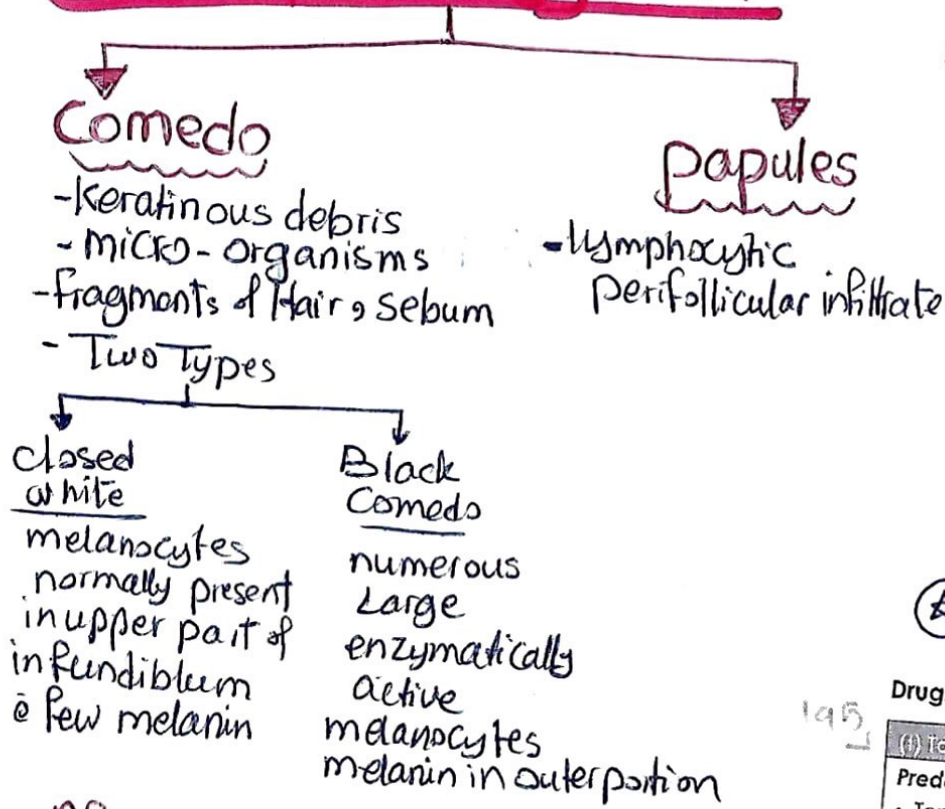 Comedo
-Keratinous debris
- micro-organisms
-fragments of Hair, Sebum
- Two Types
closed
white
melanocytes
normally present
in upper part of
infundiblum
ē few melanin
Black
Comedo
numerous
Large
enzymatically
active
melanocytes
melanin in outer portion
papules
-lymphocytic
perifollicular infiltrate
195
Drug
(1) To
Pred